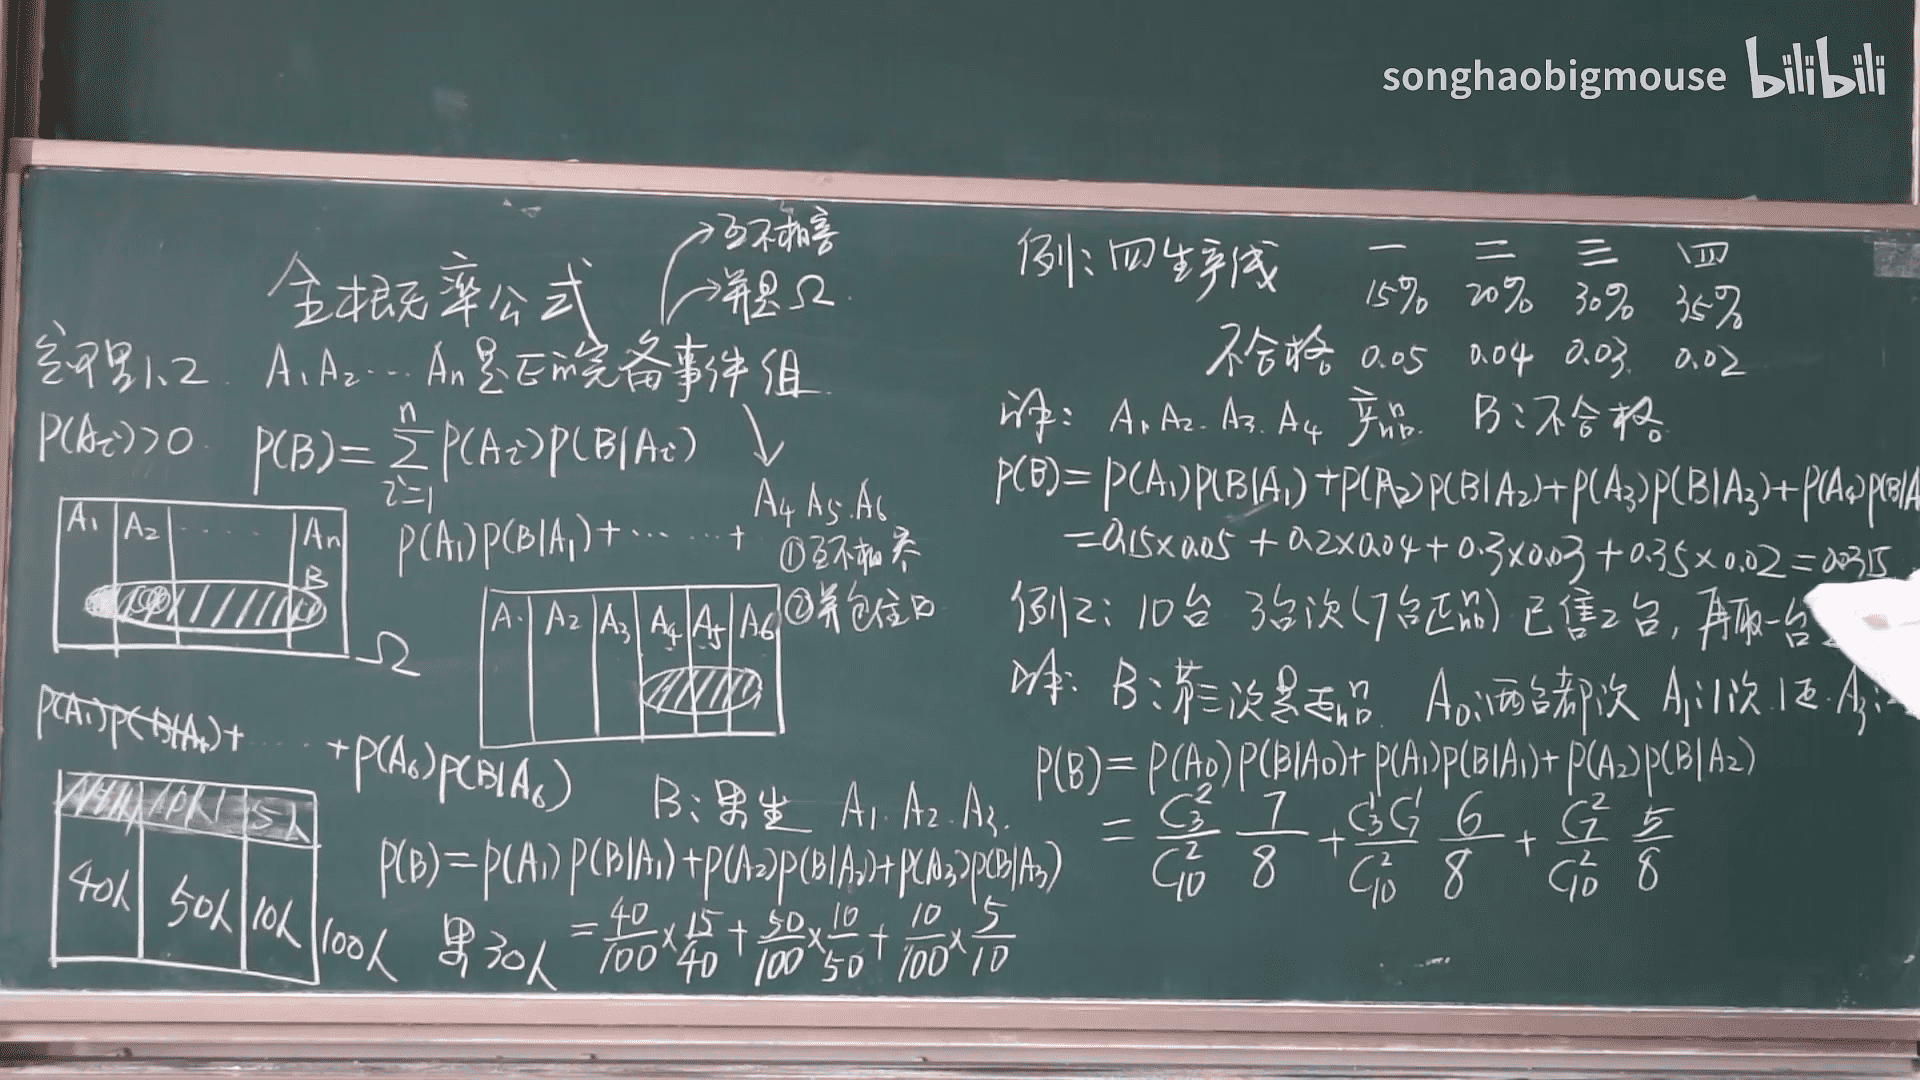 songhaobigmouse bilibili
全概率公式
→互不相容
→并是Ω
定理1.2 A₁A₂…Aₙ是E的完备事件组
P(Aᵢ)>0 P(B)=∑ᵢ₌₁ⁿP(Aᵢ)P(B|Aᵢ)
P(A₁)P(B|A₁)+……+
A₁ A₂ …… Aₙ
B
Ω
A₄ A₅ A₆
①互不相容
②并包住B
A₁ A₂ A₃ A₄ A₅ A₆
P(A₁)P(B|A₁)+……+P(A₆)P(B|A₆)
10人 5人
40人 50人 10人
100人 男30人
B:男生 A₁.A₂.A₃.
P(B)=P(A₁)P(B|A₁)+P(A₂)P(B|A₂)+P(A₃)P(B|A₃)
=40/100×15/40+50/100×10/50+10/100×5/10
例1:四生产线 一 二 三 四
15% 20% 30% 35%
不合格 0.05 0.04 0.03 0.02
解: A₁A₂.A₃.A₄ 产品 B:不合格
P(B)=P(A₁)P(B|A₁)+P(A₂)P(B|A₂)+P(A₃)P(B|A₃)+P(A₄)P(B|A
=0.15×0.05+0.2×0.04+0.3×0.03+0.35×0.02=0.0315
例2:10台 3台次(7台正品)已售2台,再取一台
解: B:第三次是正品 A₀:两台都次 A₁:1次1正.A₃:
P(B)=P(A₀)P(B|A₀)+P(A₁)P(B|A₁)+P(A₂)P(B|A₂)
=C₃²/C₁₀² 7/8+C₃¹C₇¹/C₁₀² 6/8+C₇²/C₁₀² 5/8